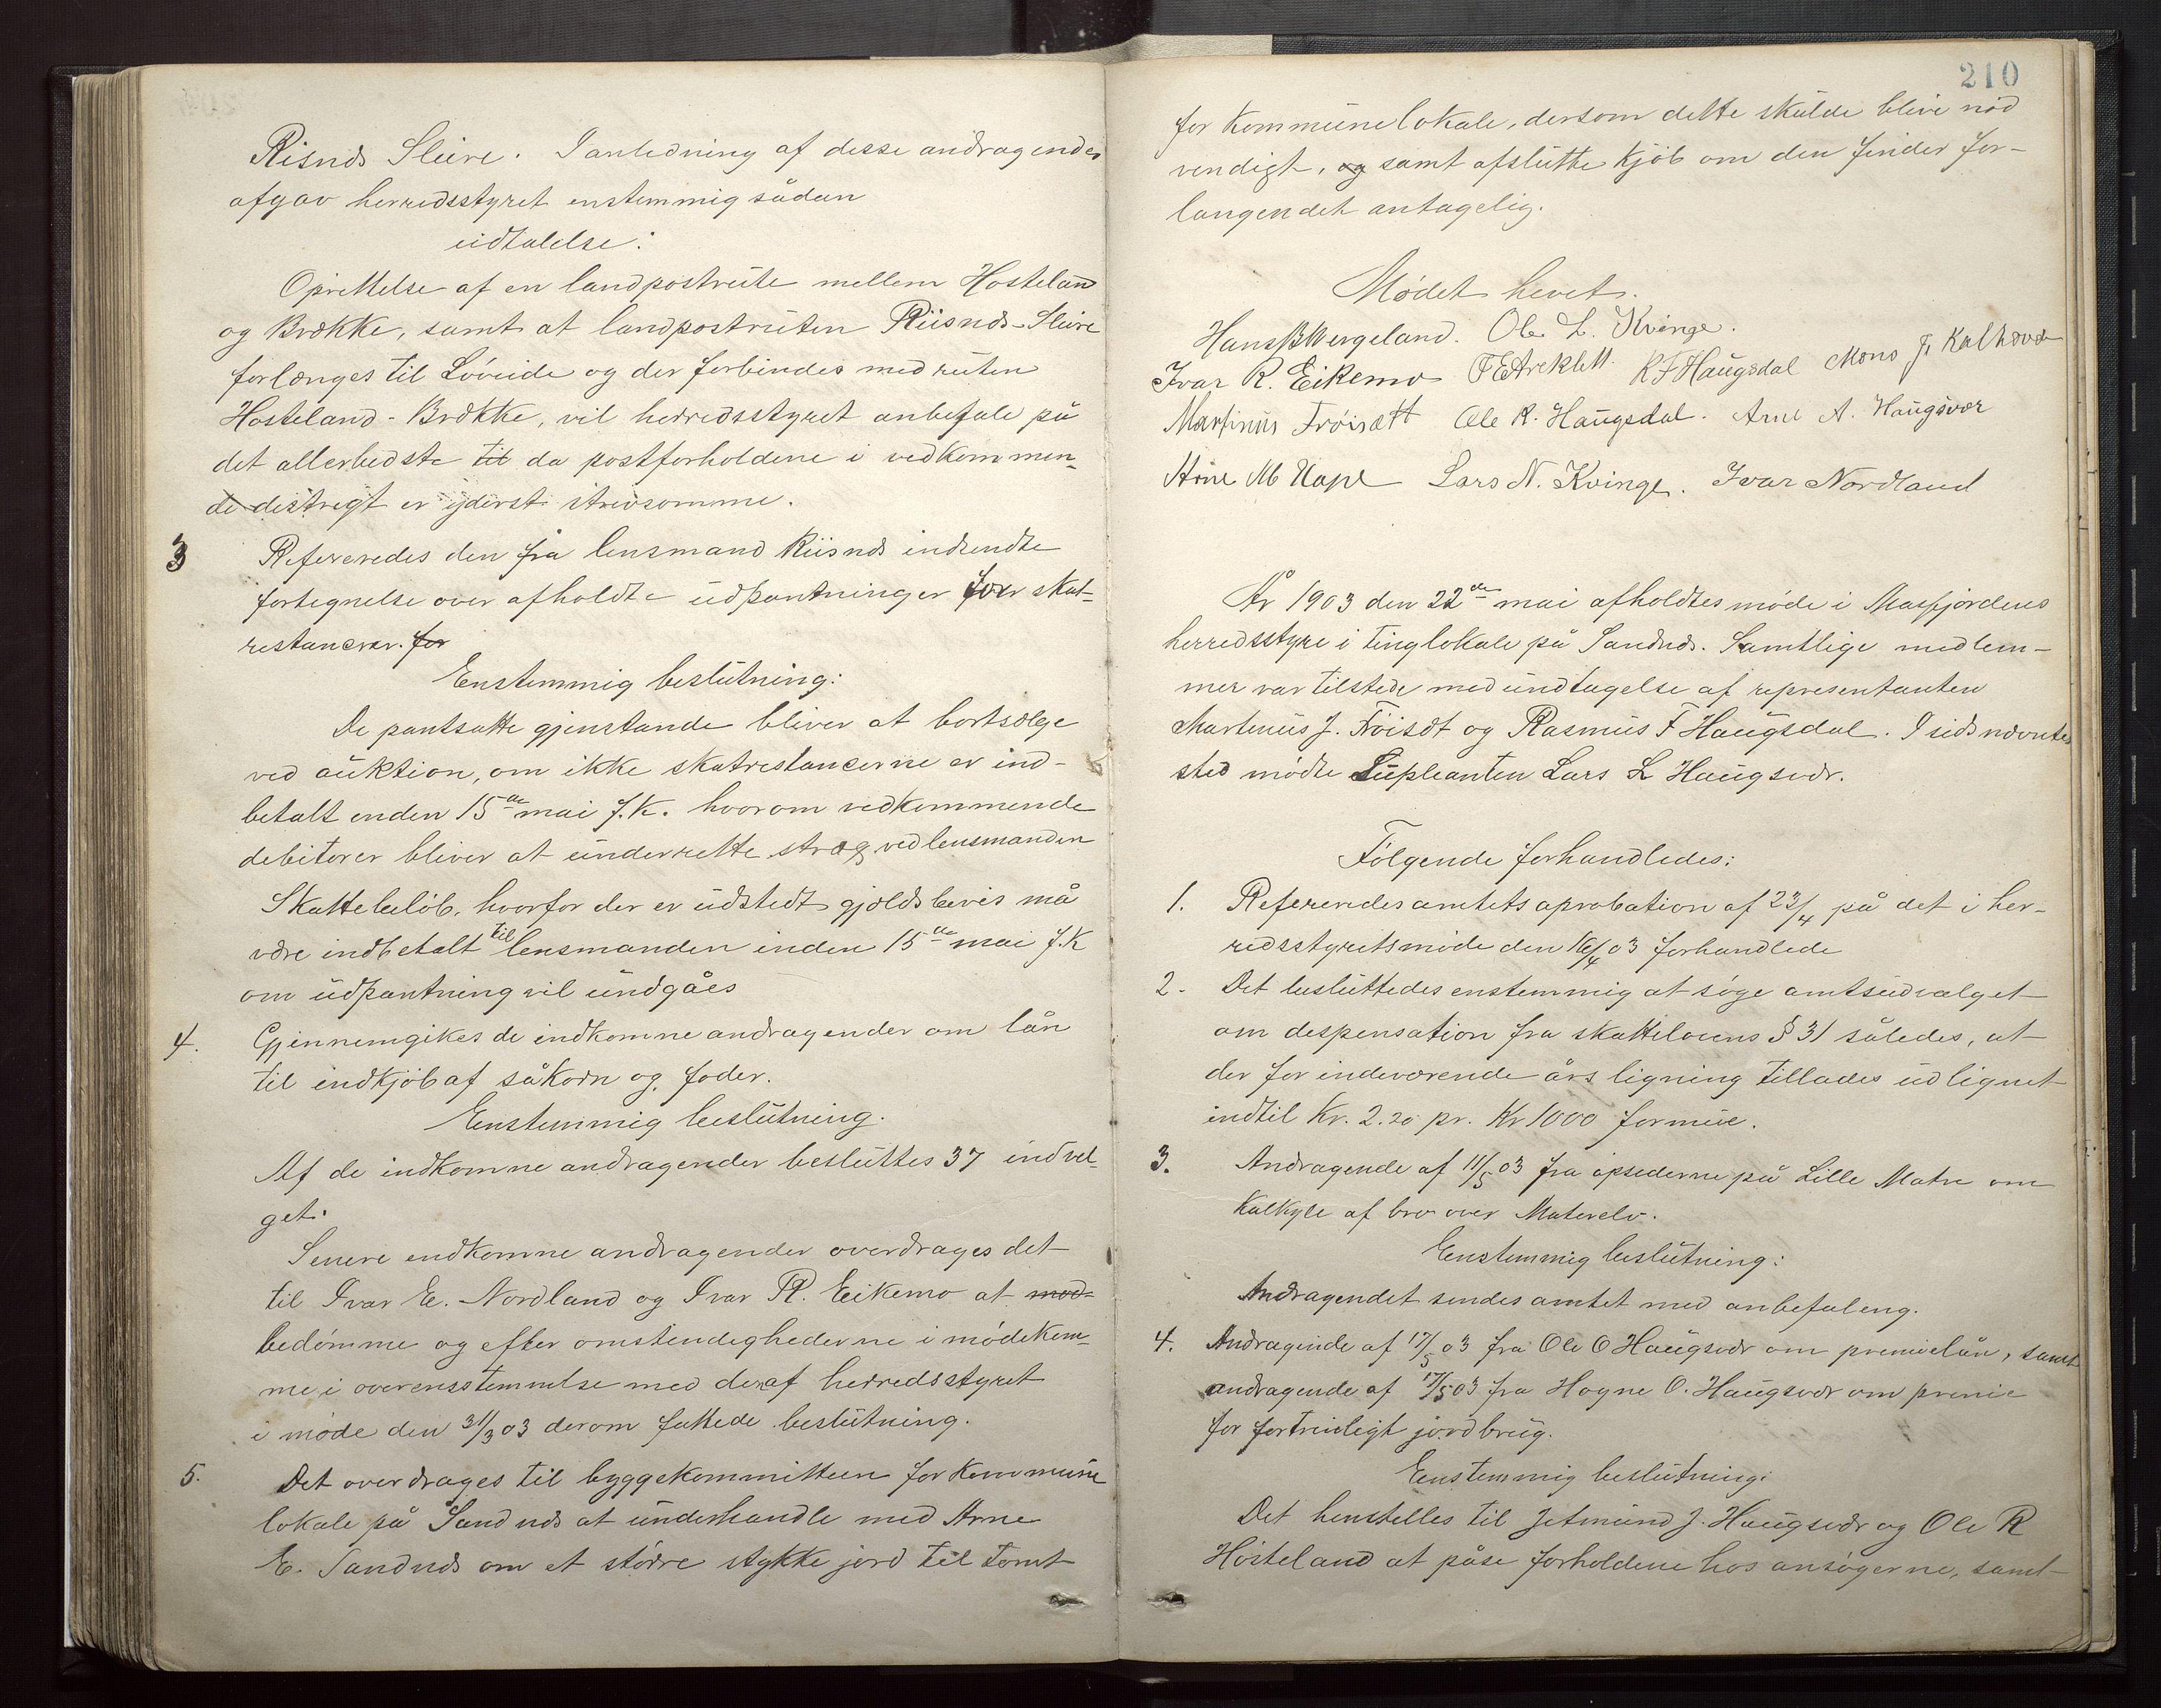 Risnds Sleire. I anledning af desse andragender
afgav herredsstyret enstemmig sådan
udtalelse:
Oprettelse af en landpostrute mellem Hosteland
og Brække, samt at landpostruten Riisnds-Sleire
forlænges til Løveide og der forbindes med ruten
Hosteland-Brække, vil herredsstyret anbefale på
det allerbedste til da postforholdene i vedkommen-
de distrigt er yderst strevsomme.
3 Refereredes den fra lensmand Riisnds indsendte
fortegnelse over afholdte udpantninger for skat-
restancer. for
Eenstemmig beslutning:
De pantsatte gjenstande bliver at bortsælge
ved auktion, om ikke skatrestancerne er ind-
betalt enden 15de mai f.k. hvorom vedkommende
debitorer bliver at underrette strag ved lensmanden
Skattebeløb, hvorfor der er udstedt gjældsbevis må
være indbetalt til lensmanden inden 15de mai f.k
om udpantning vil undgåes
4. Gjennemgikes de indkomne andragender om lån
til indkjøb af såkorn og foder.
Eenstemmig beslutning.
Af de indkomne andragender besluttes 37 indvel-
get.
Senere endkomne andragender overdrages det
til Ivar E. Nordland og Ivar R. Eikemo at mod-
bedømme og efter omstendighederne i mødekom-
me i overensstemmelse med den af herredsstyret
i møde den 31/3 03 derom fattede beslutning.
5. Det overdrages til byggekommitteen for kommune
lokale på Sandnds at underhandle med Arne
E. Sandnds om et større stykke jord til tomt
210
for kommunelokale, dersom dette skulde blive nød
vendigt, og samt afslutte kjøb om den finder for-
langendet antagelig.
Mødet hevet.
Hans B Wergeland. Ole L. Kvinge.
Ivar R. Eikemo R F Haugsdal Mons J. Kalhovde
Martinus Trøisæt Ole R. Haugsdal. Arne A. Haugsvær
Arne M Hope Lars N. Kvinge. Ivar Nordland
År 1903 den 22de mai afholdtes møde i Masfjordens
herredsstyre i tinglokale på Sandnds. Samtlige medlem-
mer var tilstede med undtagelse af representanten
Martinus J. Trøisæt og Rasmus F Haugsdal. I sidsnævntes
sted mødte Supleanten Lars L Haugsvær.
Følgende forhandledes:
1. Refereredes amtets aprobation af 23/4 på det i her-
redsstyretsmøde den 16/4 03 forhandlede
2. Det besluttedes enstemmig at søge amtsudvalget
om despensation fra skattelovens § 31 således, at
der for indeværende års ligning tillades udlignet
indtil Kr. 2.20 pr. Kr 1000 formue.
3. Andragende af 11/5 03 fra opsederne på Lille Matre om
kalkyle af bro over Materelv.
Eenstemmig beslutning:
Andragendet sendes amtet med anbefaleng.
4. Andragende af 17/5 03 fra Ole O Haugsvær om premielån, samt
andragende af 17/5 03 fra Hogne O. Haugsvær om premie
for fortrinligt jordbrug.
Eenstemmig beslutning:
Det henstelles til Jetmund J. Haugsvær og Ole R
Hosteland at påse forholdene hos ansøgerne, samt